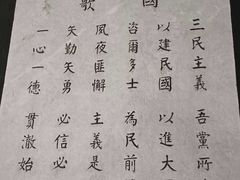 國歌
三民主義 吾黨所
以建民國 以進大
咨爾多士 為民前
夙夜匪懈 主義是
矢勤矢勇 必信必
一心一德 貫澈始